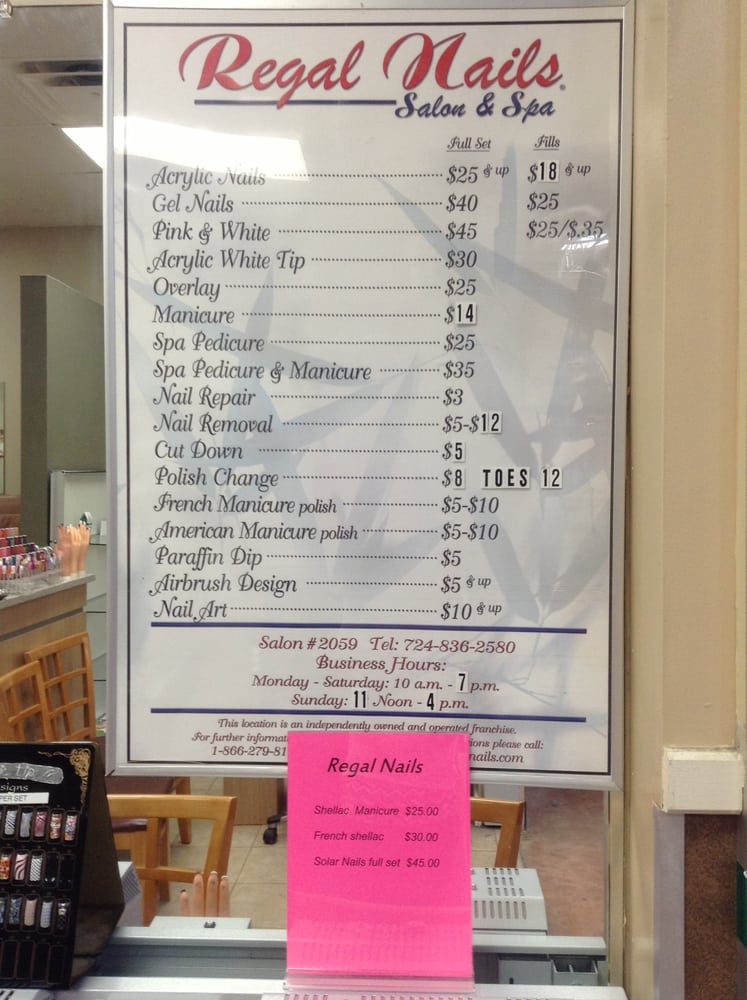 Regal Nails®
Salon & Spa
Full Set Fills
Acrylic Nails $25 & up $18 & up
Gel Nails $40 $25
Pink & White $45 $25/$.35
Acrylic White Tip $30
Overlay $25
Manicure $14
Spa Pedicure $25
Spa Pedicure & Manicure $35
Nail Repair $3
Nail Removal $5-$12
Cut Down $5
Polish Change $8 TOES 12
French Manicure polish $5-$10
American Manicure polish $5-$10
Paraffin Dip $5
Airbrush Design $5 & up
Nail Art $10 & up
Salon #2059 Tel: 724-836-2580
Business Hours:
Monday - Saturday: 10 a.m. - 7 p.m.
Sunday: 11 Noon - 4 p.m.
This location is an independently owned and operated franchise.
For further informat ions please call:
1-866-279-81 nails.com
Regal Nails
Shellac Manicure $25.00
French shellac $30.00
Solar Nails full set $45.00
signs
PER SET